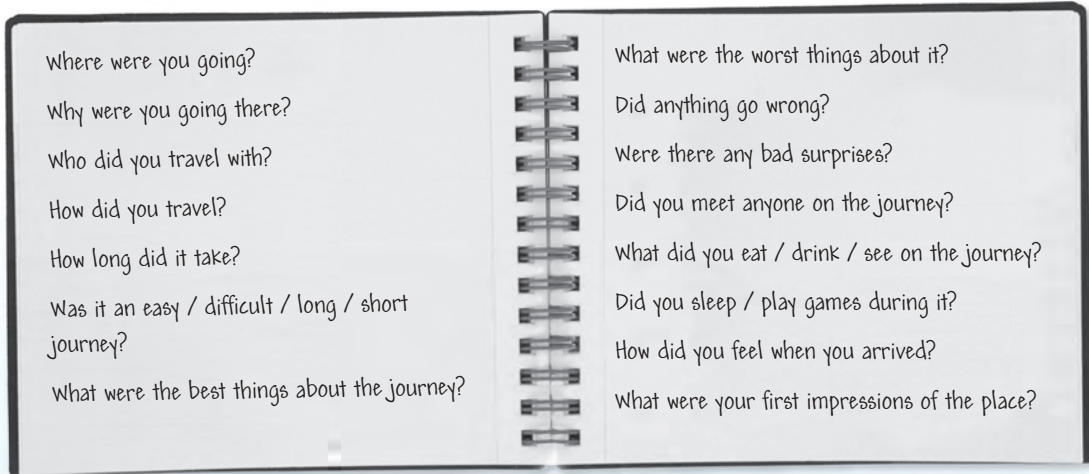 Where were you going?
Why were you going there?
Who did you travel with?
How did you travel?
How long did it take?
Was it an easy / difficult / long / short
journey?
What were the best things about the journey?
What were the worst things about it?
Did anything go wrong?
Were there any bad surprises?
Did you meet anyone on the journey?
What did you eat / drink / see on the journey?
Did you sleep / play games during it?
How did you feel when you arrived?
What were your first impressions of the place?